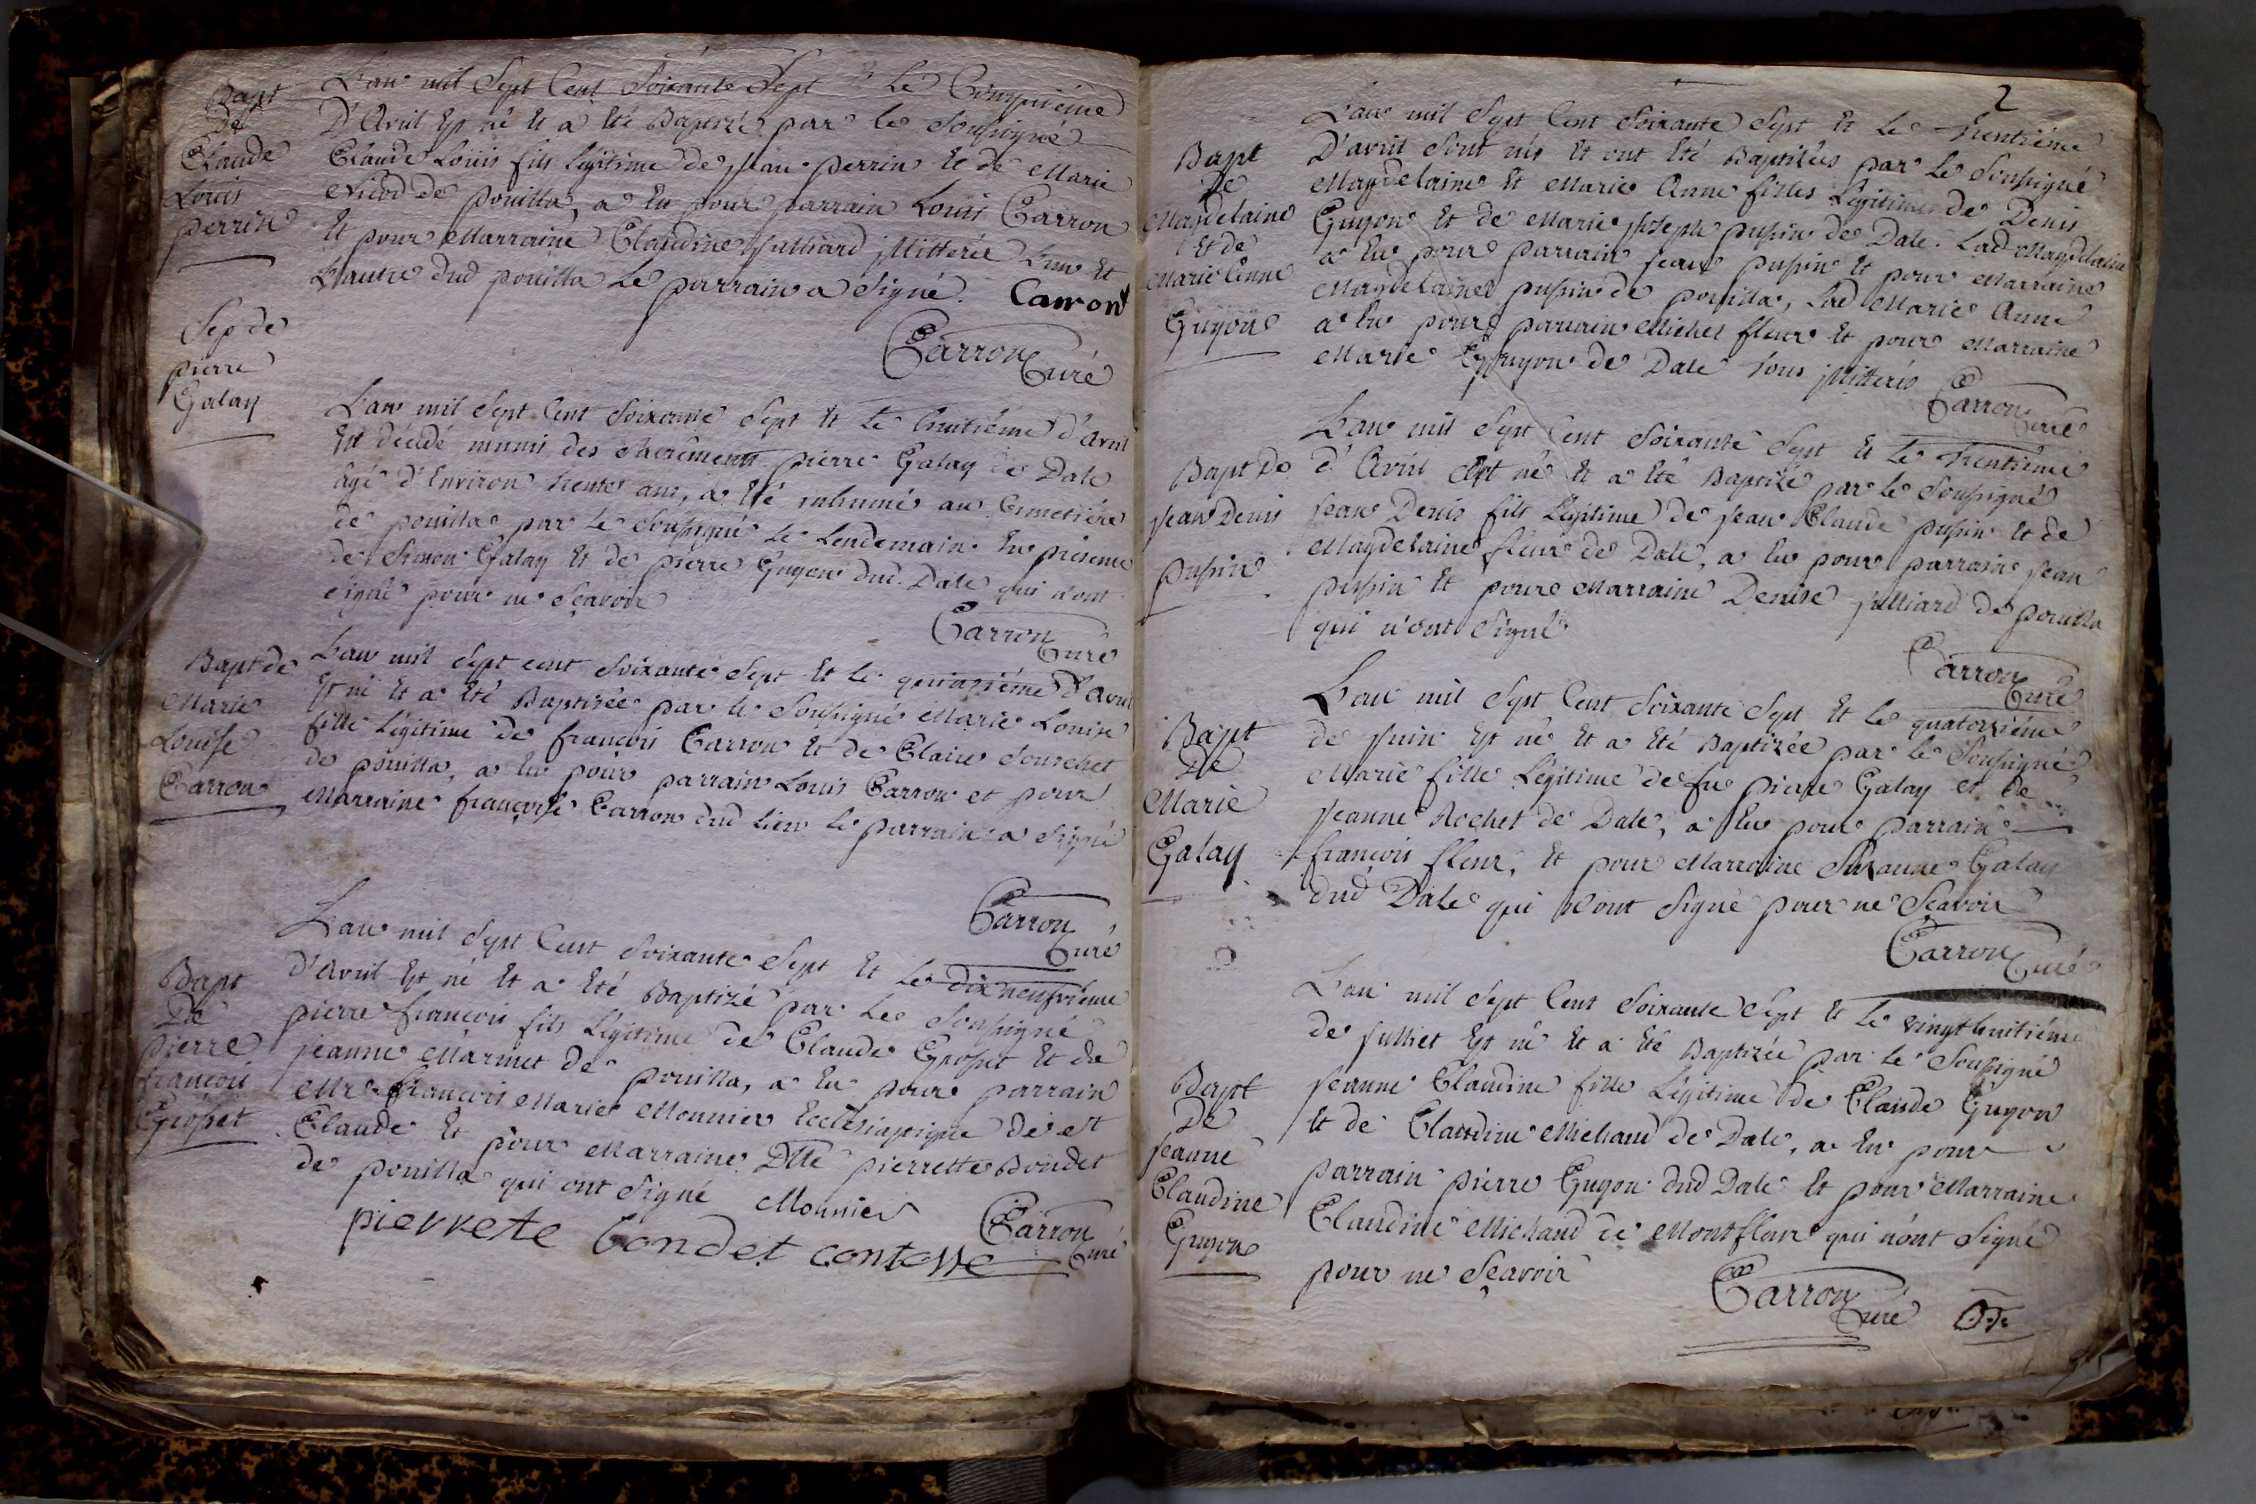 Bapt
de
Claude
Louis
perrin
L'an mil Sept Cent Soixante Sept Et Le Cinquiéme
D'Avril Est né Et a Eté Baptizé par le Soussigné
Claude Loüis fils Légitime de jean perrin Et de Marie
Nicod de pouilla, a Eu pour parrain Louis Carron
Et pour Marraine Claudine julliard jllitterée L'un Et
L'autre dud pouilla Le parrain a Signé. Carron
Carron
Curé
Sep de
pierre
Galay
L'an mil Sept Cent Soixante Sept Et Le huitiéme d'Avril
Est décédé munis des Sacréments pierre Galay de Dale
agé d'Environ trente ans, a Eté inhumé au Cimetiére
de pouilla par Le Soussigné Le Lendemain En présence
de Simon Galay Et de pierre Guyon dud. Dale qui n'ont
Signé pour ne Sçavoir
Carron
Curé
Bapt de
Marie
Louise
Carron
L'an mil Sept cent Soixante Sept Et Le quinziéme d'Avril
Est né Et a Eté Baptizée par le Soussigné Marie Louise
fille Légitime de françois Carron Et de Claire Sourchet
de pouilla, a Eu pour parrain Louis Carron et pour
Marraine françoise Carron dud lieu Le parrain a Signé
Carron
Curé
Bapt
De
pierre
françois
Grosset
L'an mil Sept Cent Soixante Sept Et Le dix neufviéme
D'Avril Est né Et a Eté Baptizé par Le Soussigné
pierre françois fils Légitime de Claude Grosset Et de
jeanne Marmet de pouilla, a Eu pour parrain
Mr françois Marie Mounier Ecclésiastique de St
Claude Et pour Marraine Dlle pierrette Bondet
de pouilla qui ont Signé Mounier
Carron
Curé
pierrete bondet contesse
2
Bapt
De
Magdelaine
Et de
Marie Anne
Guyon
L'an mil Sept Cent Soixante Sept Et Le trentiéme
D'avril Sont nés Et ont Eté Baptizées par Le Soussigné
Magdelaine Et Marie Anne filles Légitimes de Denis
Guyon Et de Marie joseph pupin de Dale. Lad Magdelaine
a Eu pour parrain jean pupin Et pour Marraine
Magdelaine pupin de pouilla, Lad Marie Anne
a Eu pour parrain Michel fleur Et pour Marraine
Marie Guyon de Dale tous jllitterés
Carron
Curé
Bapt de
jean Denis
pupin
L'an mil Sept Cent Soixante Sept Et Le trentiéme
d'Avril Est né Et a Eté Baptizé par le Soussigné
jean Denis fils Légitime de jean Claude pupin Et de
Magdelaine fleur de Dale, a Eu pour parrain jean
pupin Et pour Marraine Denise julliard de pouilla
qui n'ont Signé
Carron
Curé
Bapt
De
Marie
Galay
L'an mil Sept Cent Soixante Sept Et le quatorziéme
de juin Est né Et a Eté Baptizée par le Soussigné
Marie fille Légitime de feu pierre Galay et de
jeanne Rochet de Dale, a Eu pour parrain
françois fleur, Et pour Marraine Suzanne Galay
dud Dale qui n'ont Signé pour ne Scavoir
Carron
Curé
Bapt
De
jeanne
Claudine
Guyon
L'an mil Sept Cent Soixante Sept Et Le vingt huitiéme
de julliet Est né Et a Eté Baptizée par le Soussigné
jeanne Claudine fille Légitime de Claude Guyon
Et de Claudine Michaud de Dale, a Eu pour
parrain pierre Guyon dud Dale Et pour Marraine
Claudine Michaud de Montfleur qui n'ont Signé
pour ne Sçavoir
Carron
Curé